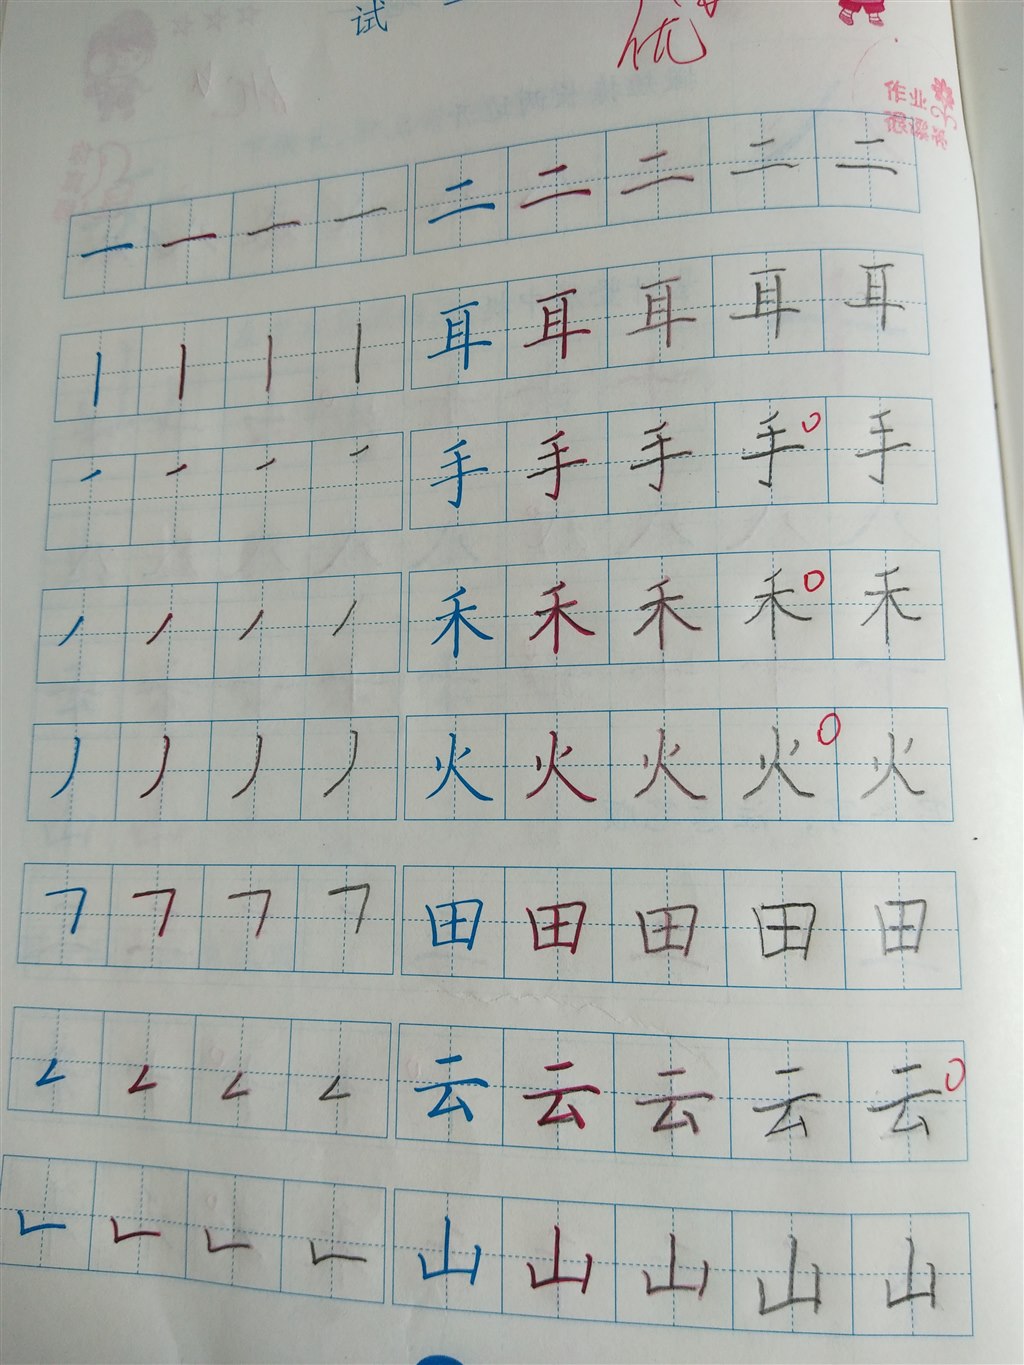 试
优
作业
一 一 一 一 二 二 二 二 二
丨 丨 丨 丨 耳 耳 耳 耳 耳
㇀ ㇀ ㇀ ㇀ 手 手 手 手 手
丿 丿 丿 丿 禾 禾 禾 禾 禾
丿 丿 丿 丿 火 火 火 火 火
𠃍 𠃍 𠃍 𠃍 田 田 田 田 田
𠃋 𠃋 𠃋 𠃋 云 云 云 云 云
𠃊 𠃊 𠃊 𠃊 山 山 山 山 山